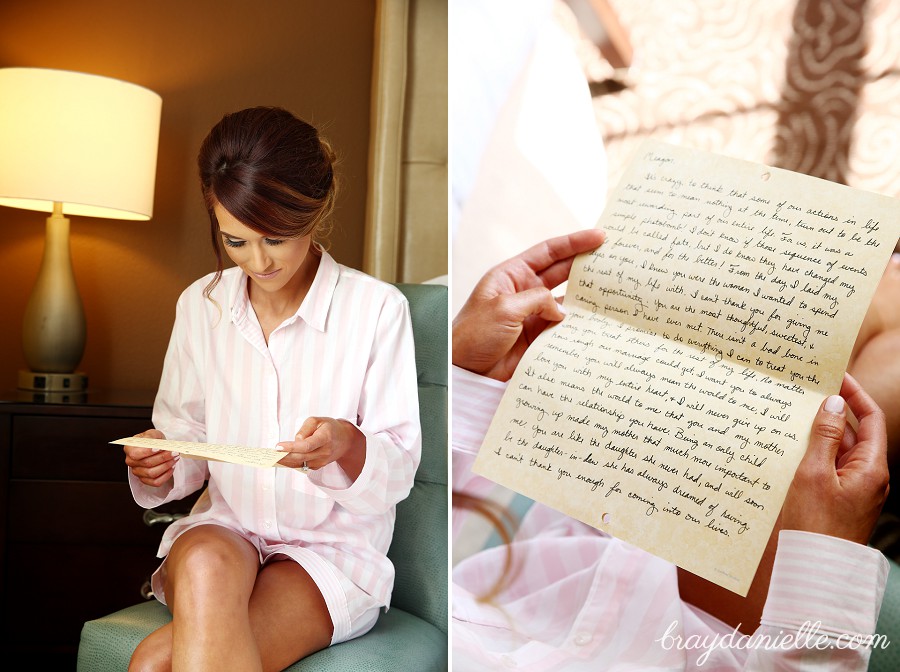 Reagan,
It's crazy to think that some of our actions in life
that seem to mean nothing at the time, turn out to be the
most rewarding part of our entire life. For us, it was a
simple photobomb! I don't know if those sequence of events
would be called fate, but I do know they have changed my
life forever, and for the better! From the day I laid my
eyes on you, I knew you were the woman I wanted to spend
the rest of my life with. I can't thank you for giving me
that opportunity. You are the most thoughtful, sweetest, &
caring person I have ever met. There isn't a bad bone in
your body. I promise to do everything I can to treat you the
way you treat others for the rest of my life. No matter
how rough our marriage could get, I want you to always
remember you will always mean the world to me. I will
love you with my entire heart, & I will never give up on us.
It also means the world to me that you and my mother
can have the relationship you have. Being an only child
growing up made my mother that much more important to
me. You are like the daughter she never had, and will soon
be the daughter-in-law she has always dreamed of having.
I can't thank you enough for coming into our lives.
braydanielle.com